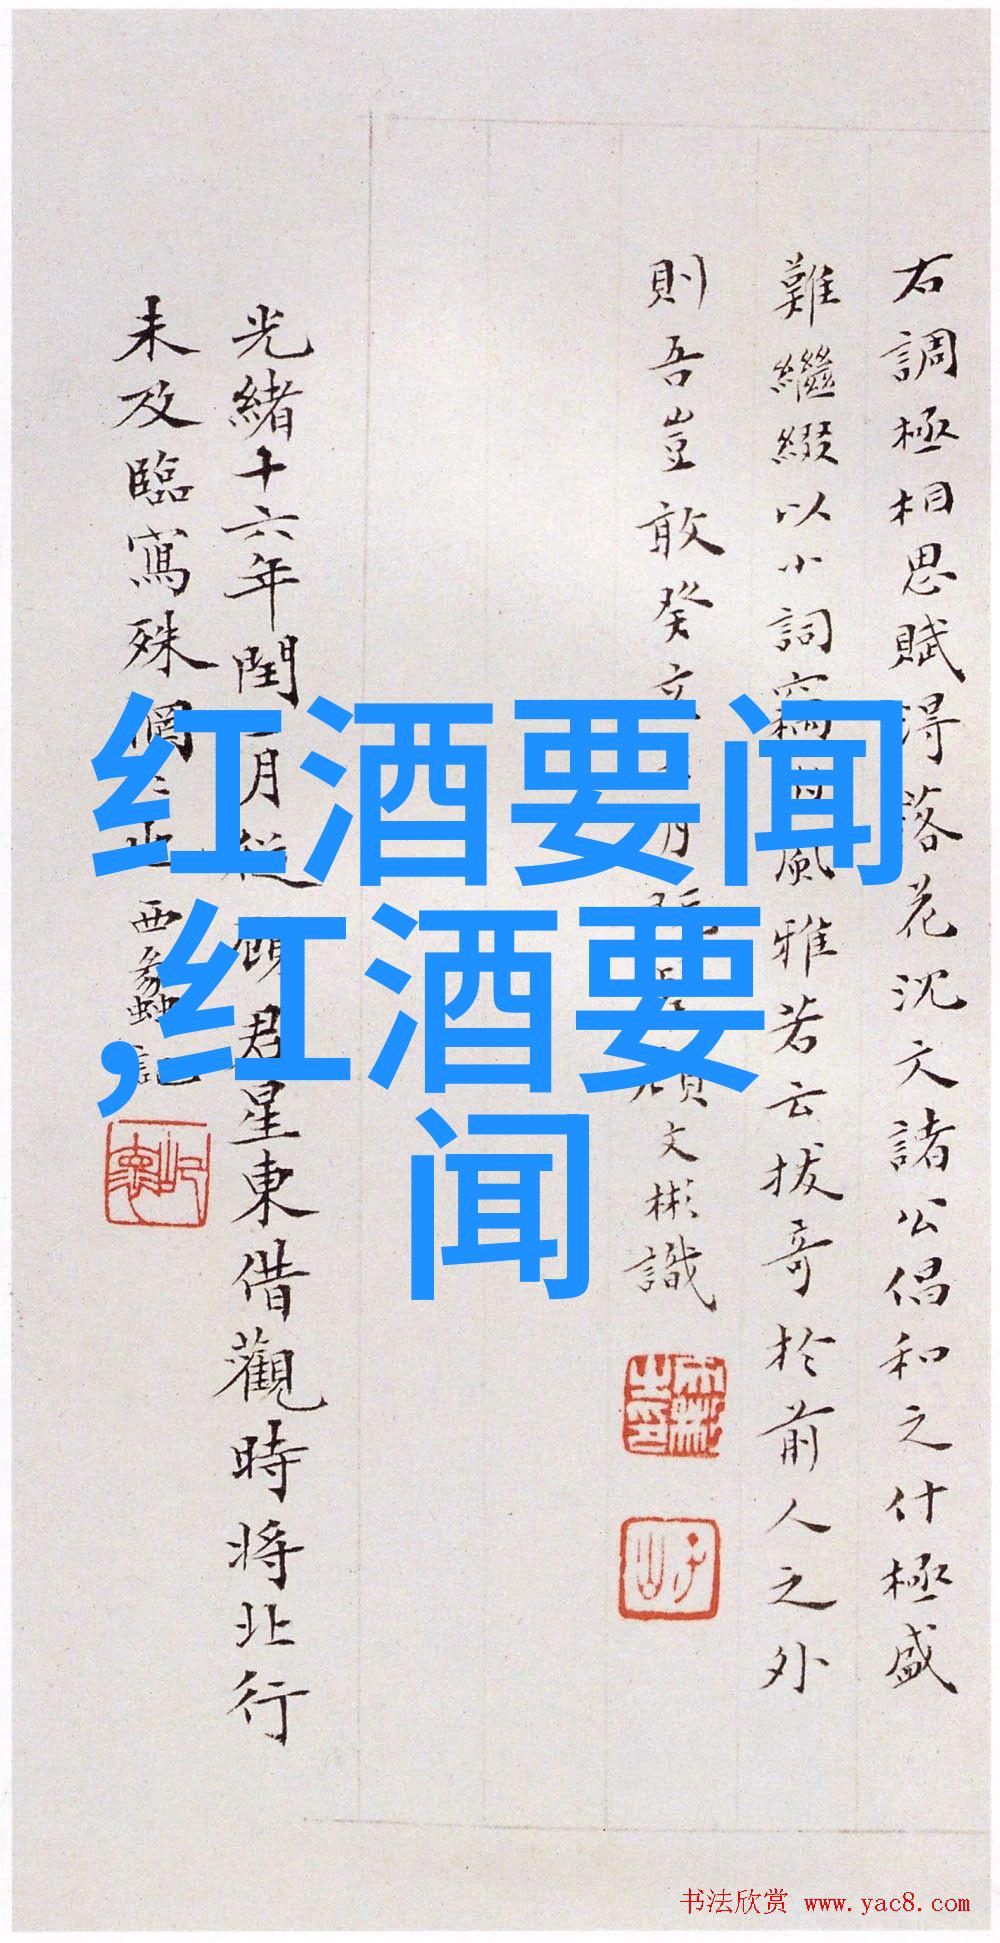 右調極相思賦得落花沈文諸公倡和之什極盛
難繼綴以小詞竊風雅若云拔奇於前人之外
則吾豈敢癸文彬識
光緒十六年閏二月從顧君星東借觀時將北行
未及臨寫殊惘惘也西蠡記
红酒要闻
,红酒要
闻
书法欣赏 www.yac8.com